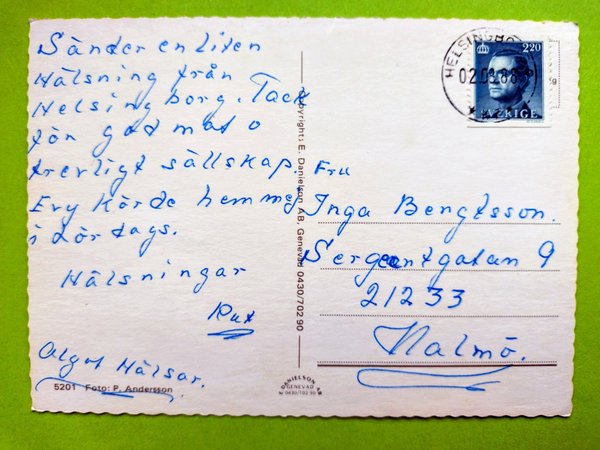 Sänder en liten
Hälsning från
Helsingborg. Tack
för god mat o
trevligt sällskap.
Evy Körde hem mej
i Lördags.
Hälsningar
Rut
Algot Hälsar.
5201 Foto: P. Andersson
Copyright: E. Danielson AB, Genevad 0430/702 90
DANIELSON AB
GENEVAD
0430/702 90
HELSINGBO
02.08.88
2.20
SVERIGE
Fru
Inga Bengtsson.
Sergeantgatan 9
21233
Malmö.